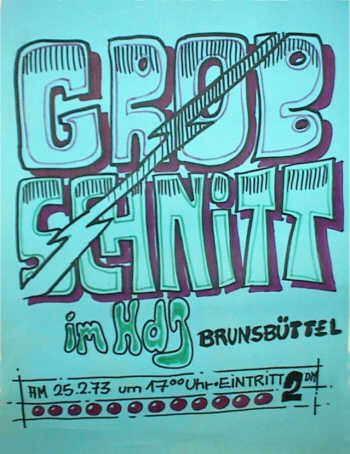 GROB
SCHNITT
im HdJ BRUNSBÜTTEL
AM 25.2.73 um 17⁰⁰ Uhr·EINTRITT 2 DM